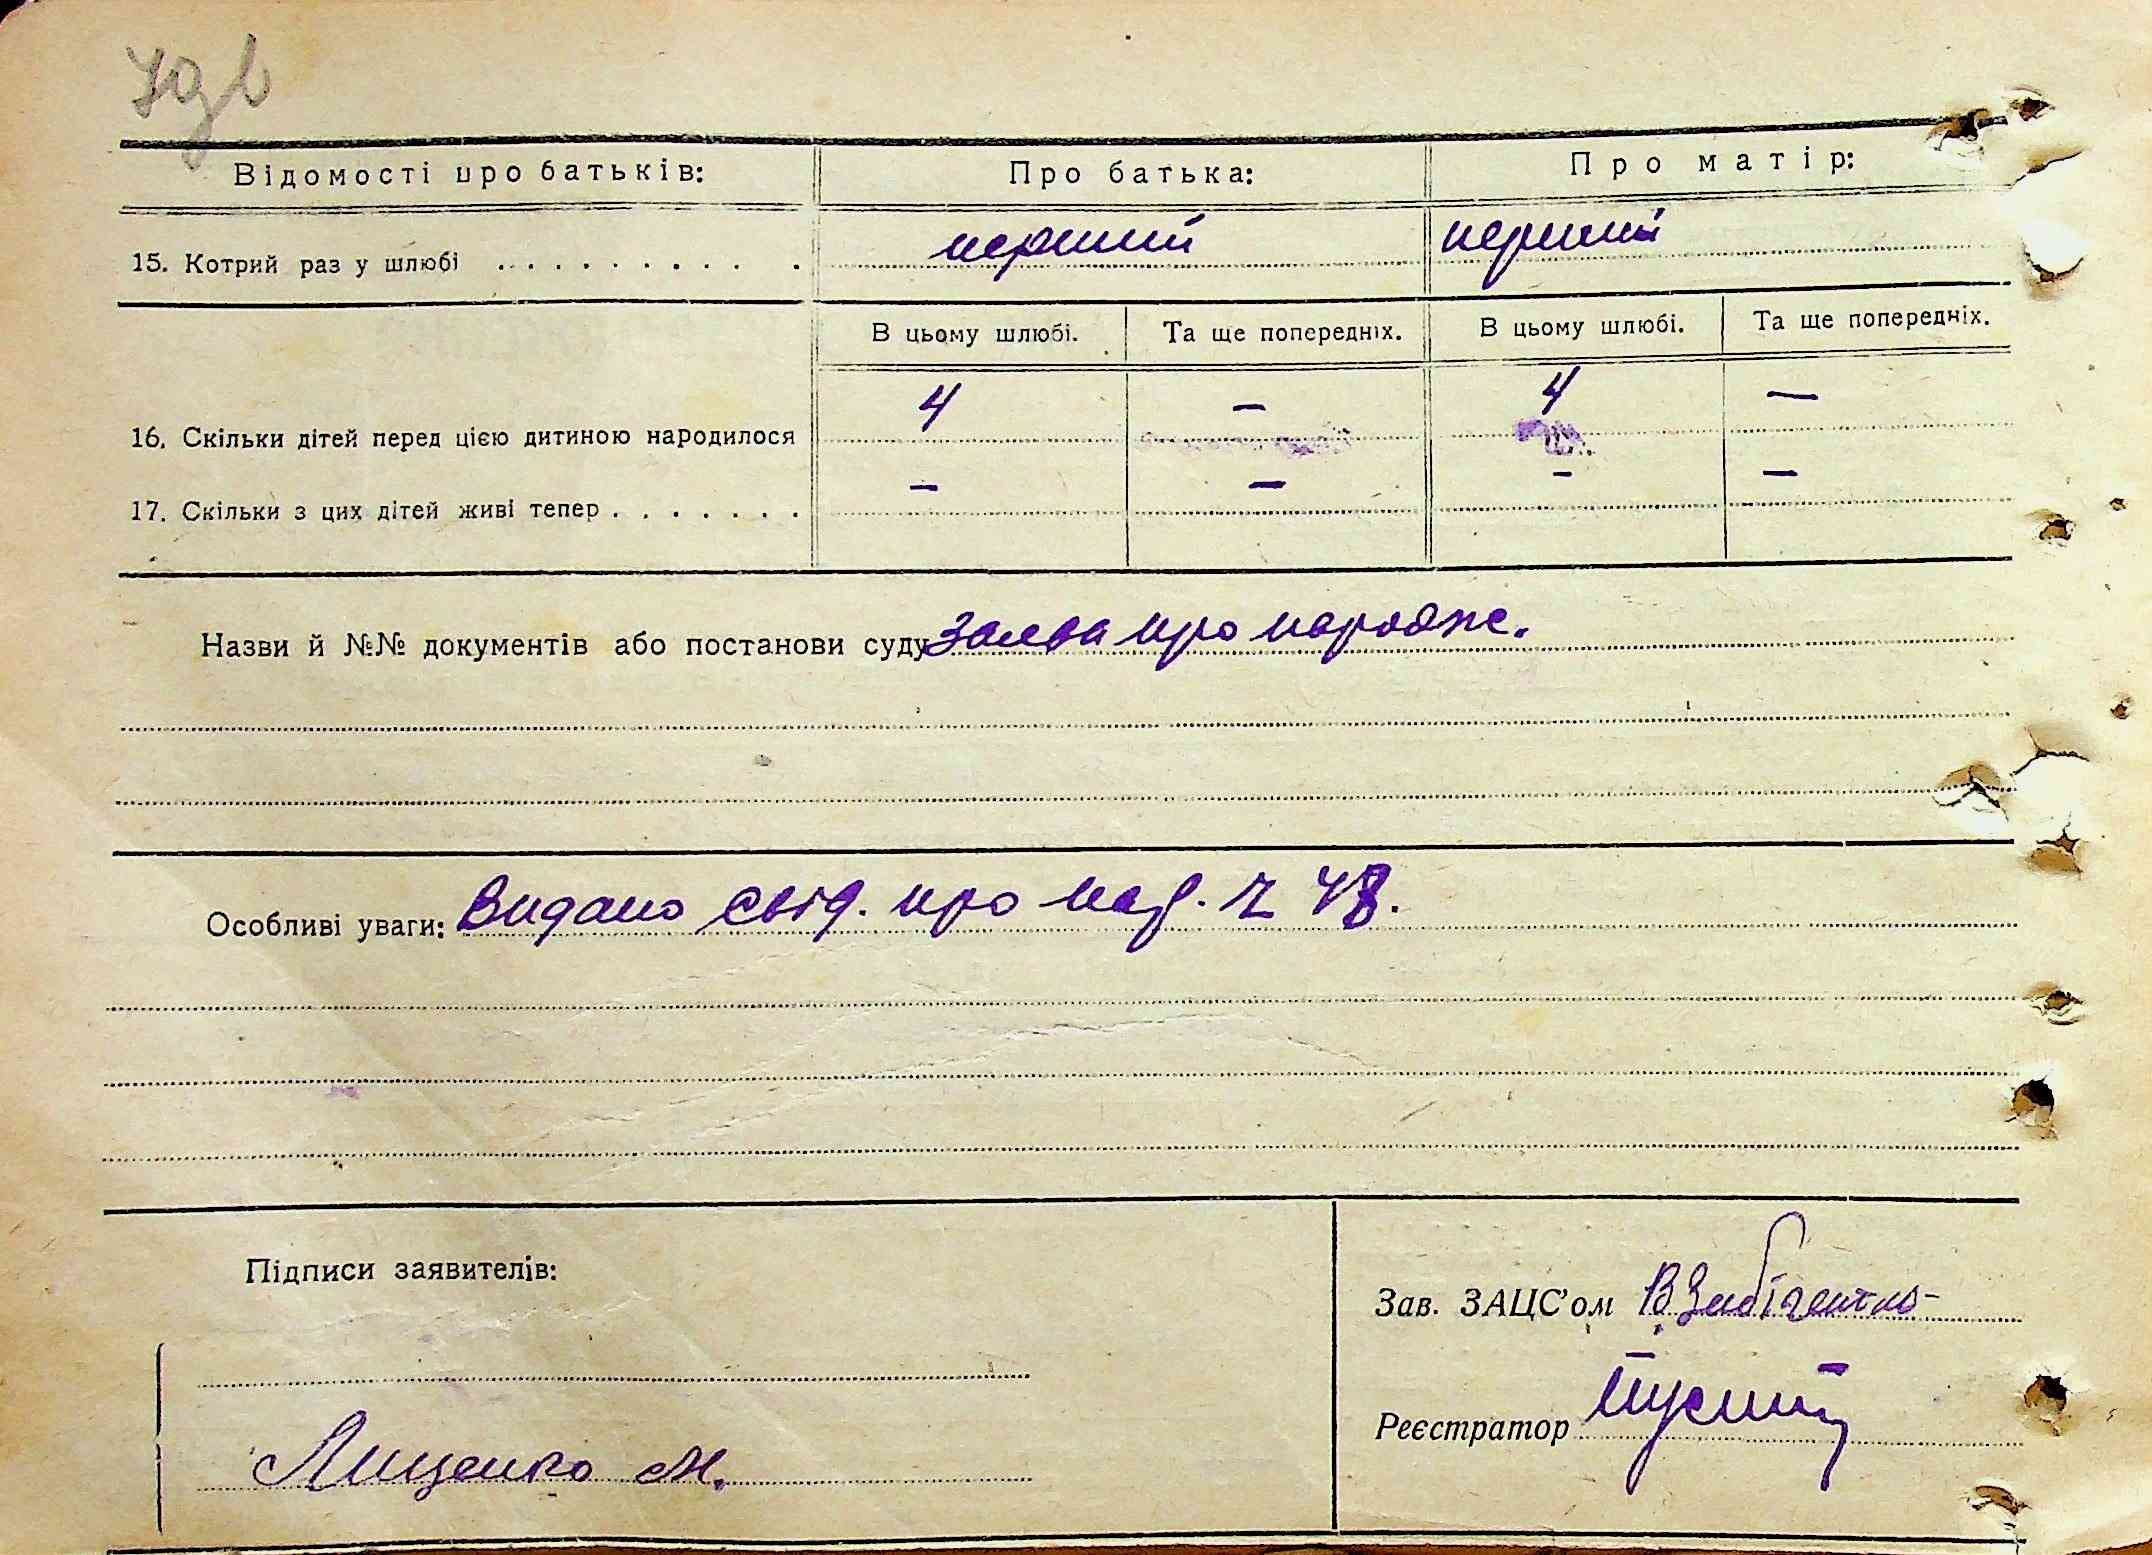 Відомості про батьків: Про батька: Про матір:
15. Котрий раз у шлюбі . . . . . . . . . . . перший перший
В цьому шлюбі. Та ще попередніх. В цьому шлюбі. Та ще попередніх.
16. Скільки дітей перед цією дитиною народилося 4 – 4 –
17. Скільки з цих дітей живі тепер . . . . . . . – – – –
Назви й №№ документів або постанови суду Заява про народж.
Особливі уваги: Видано свід. про нар. ч 48.
Підписи заявителів:
Зав. ЗАЦС'ом
Реєстратор
Лищенко М.